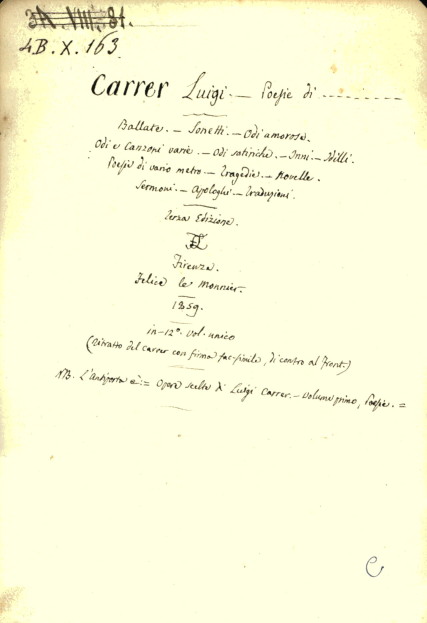 3A. VIII. 81.
4B. X. 163
Carrer Luigi. — Poesie di ..........
Ballate. — Sonetti. — Odi amorose.
Odi e Canzoni varie. — Odi satiriche. — Inni. — Idilli.
Poesie di vario metro. — Tragedie. — Novelle.
Sermoni. — Apologhi. — Traduzioni.
Terza Edizione.
Firenze.
Felice le Monnier.
1859.
in-12° vol. unico
(Ritratto del Carrer con firma fac-simile, di contro al Front.)
NB. L'Antiporta è: = Opere scelte di Luigi Carrer. — Volume primo, Poesie. =